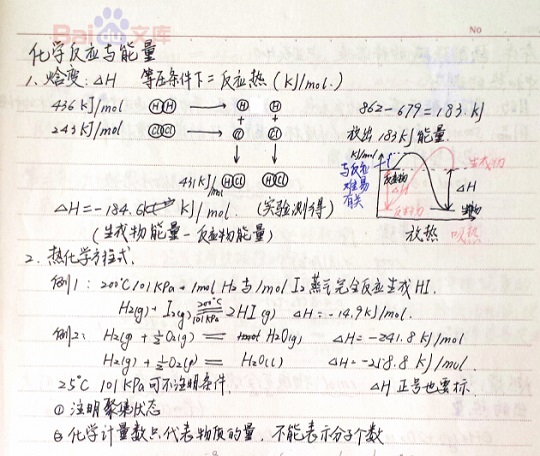 Baidu文库
No
化学反应与能量
1、焓变: △H 等压条件下=反应热 (KJ/mol.)
436KJ/mol HH → H H 862-679=183.KJ
243KJ/mol ClCl → Cl Cl 放出183KJ能量.
+ +
431KJ/mol HCl HCl
KJ/mol
与反应难易有关
反应物 生成物
△H △H
反应物 生成物
放热 吸热
△H=-184.6 KJ/mol. (实验测得)
(生成物能量-反应物能量)
2. 热化学方程式.
例1: 200℃ 101KPa 1mol H₂与1mol I₂蒸气完全反应生成HI.
H₂(g)+I₂(g) 200℃ 101KPa 2HI(g) △H=-14.9KJ/mol.
例2: H₂(g)+½O₂(g) = H₂O(g) △H=-241.8KJ/mol
H₂(g)+½O₂(g) = H₂O(l) △H=-258.8KJ/mol.
25℃ 101KPa可不注明条件. △H正号也要标.
①注明聚集状态
②化学计量数只代表物质的量,不能表示分子个数